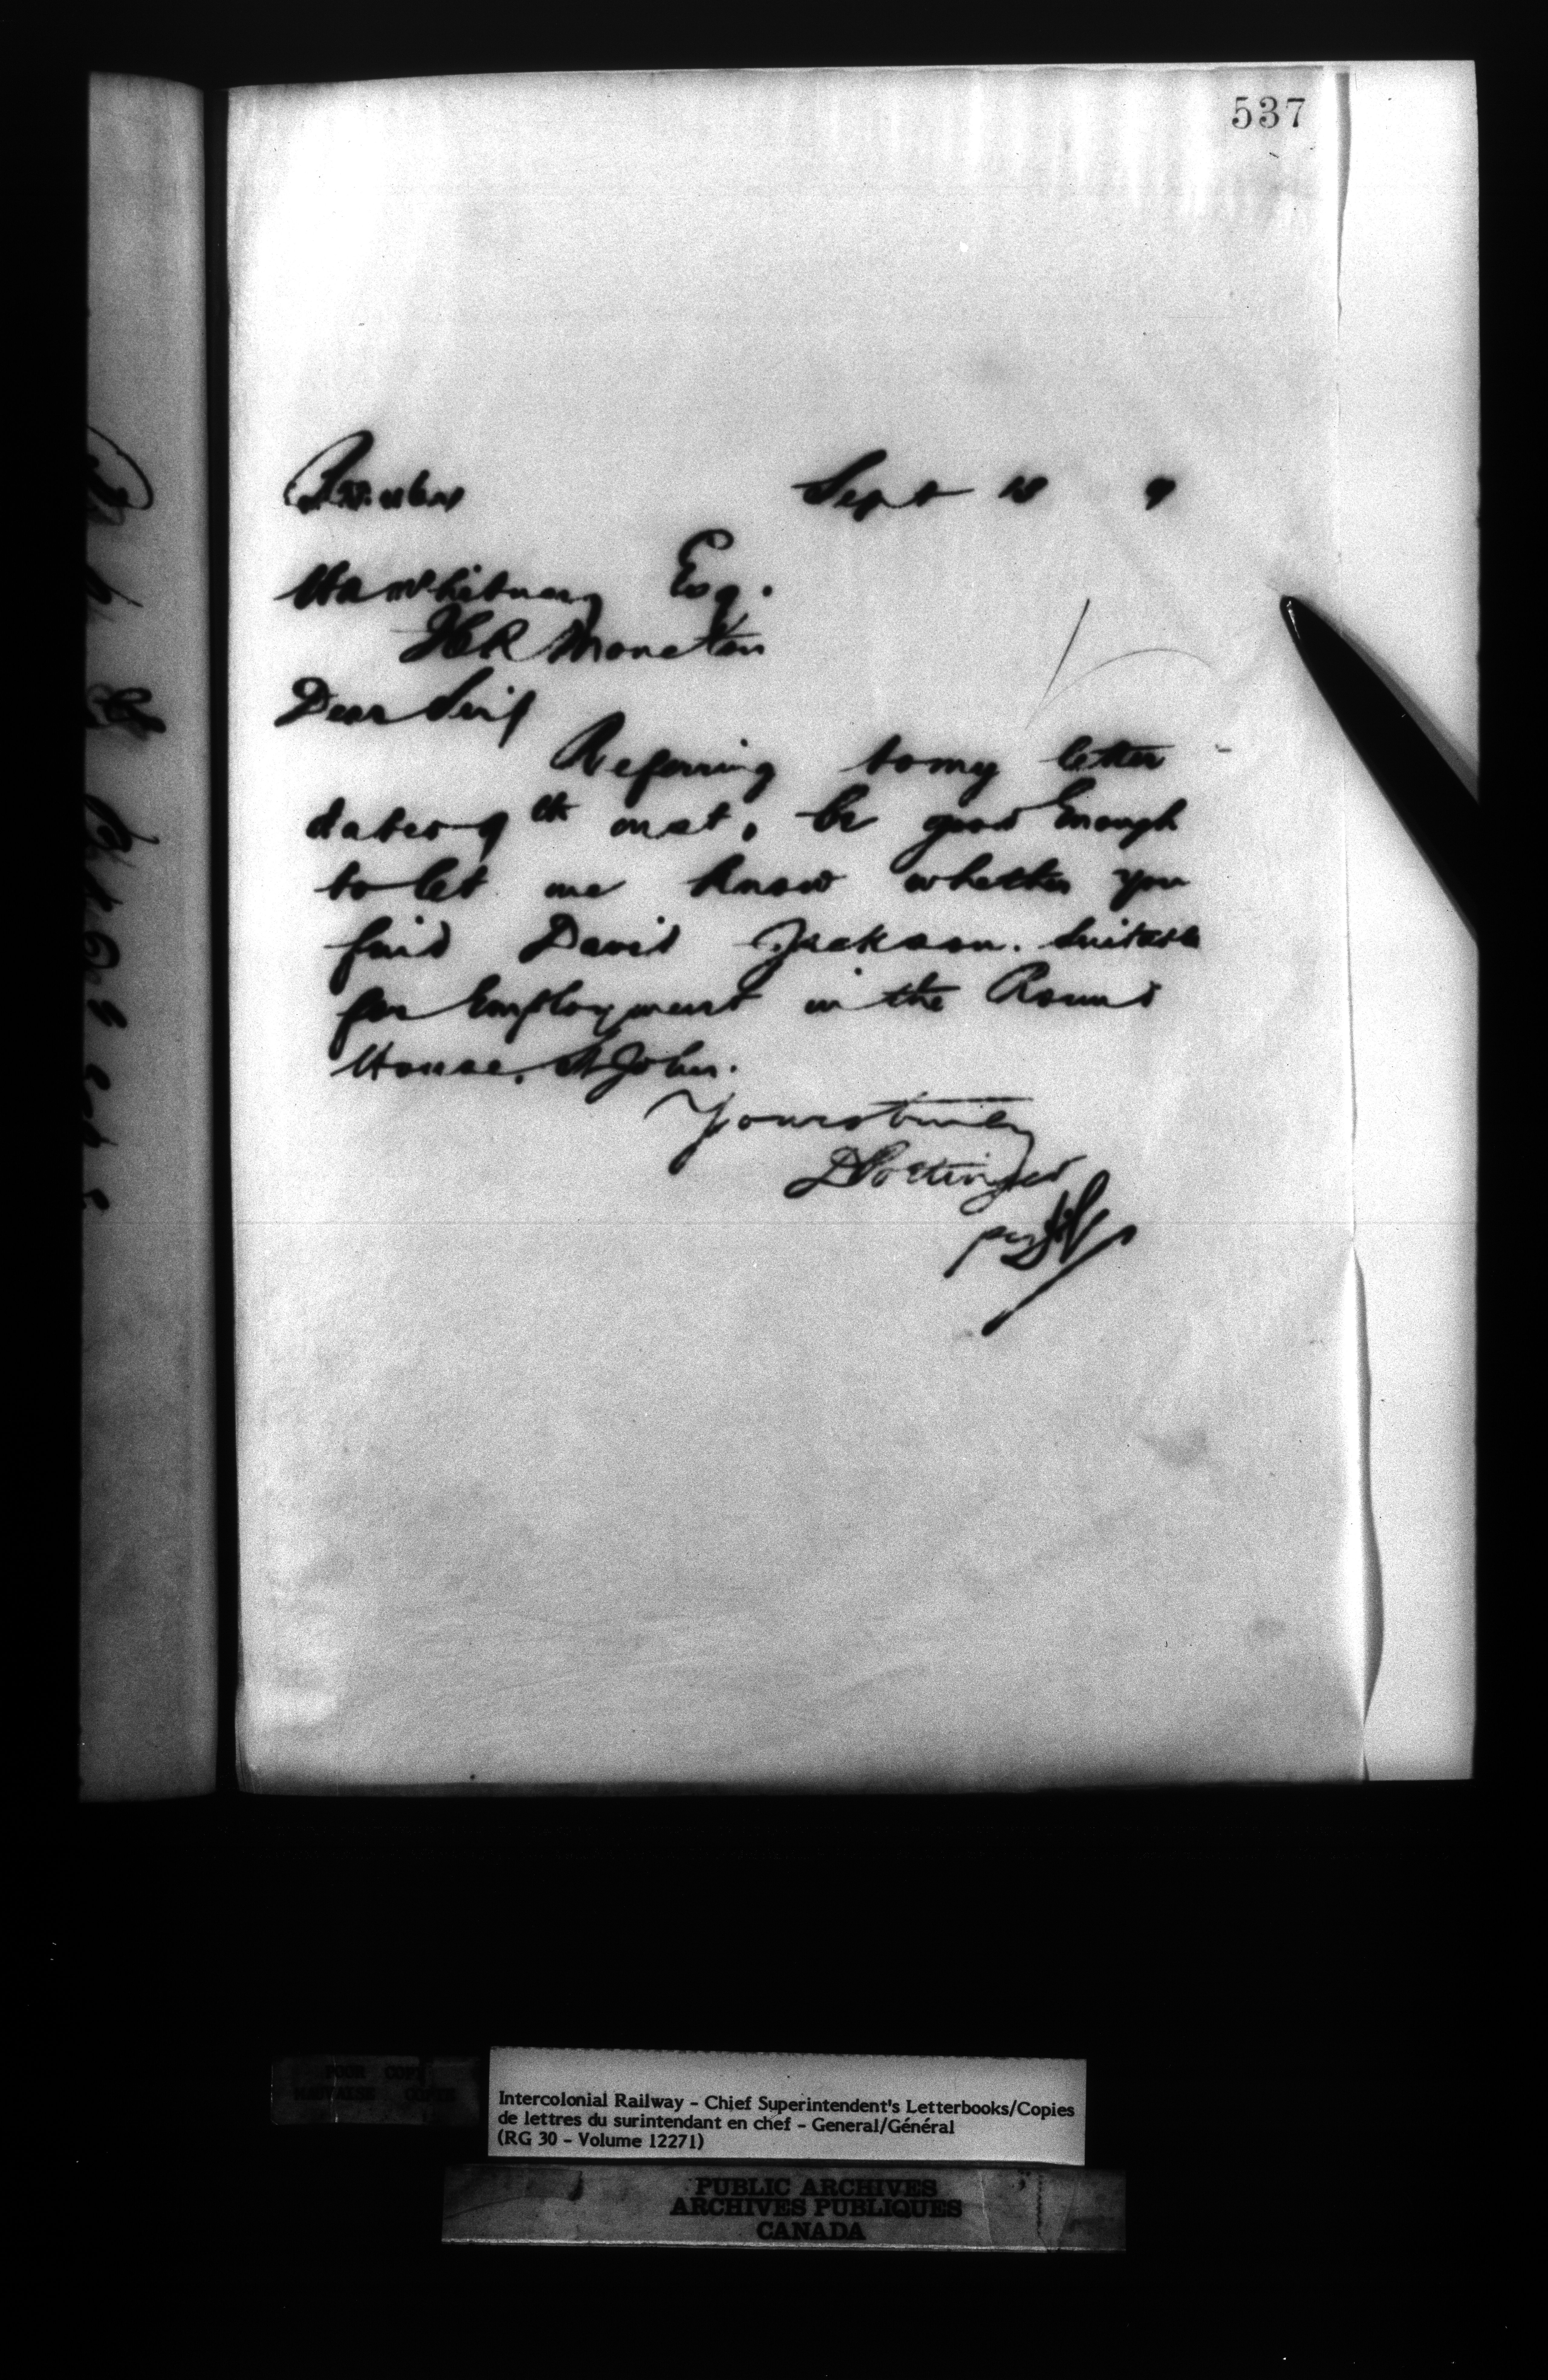 537
Sept 18 9
H A Whitney Esq.
ICR Moncton
Dear Sir/
Referring to my letter
dated 9th inst, be good enough
to let me know whether you
find David Jackson. suitable
for Employment in the Round
House, St John.
Yours truly
D Pottinger
per
POOR COPY
MAUVAISE COPIE
Intercolonial Railway - Chief Superintendent's Letterbooks/Copies
de lettres du surintendant en chef - General/Général
(RG 30 - Volume 12271)
PUBLIC ARCHIVES
ARCHIVES PUBLIQUES
CANADA